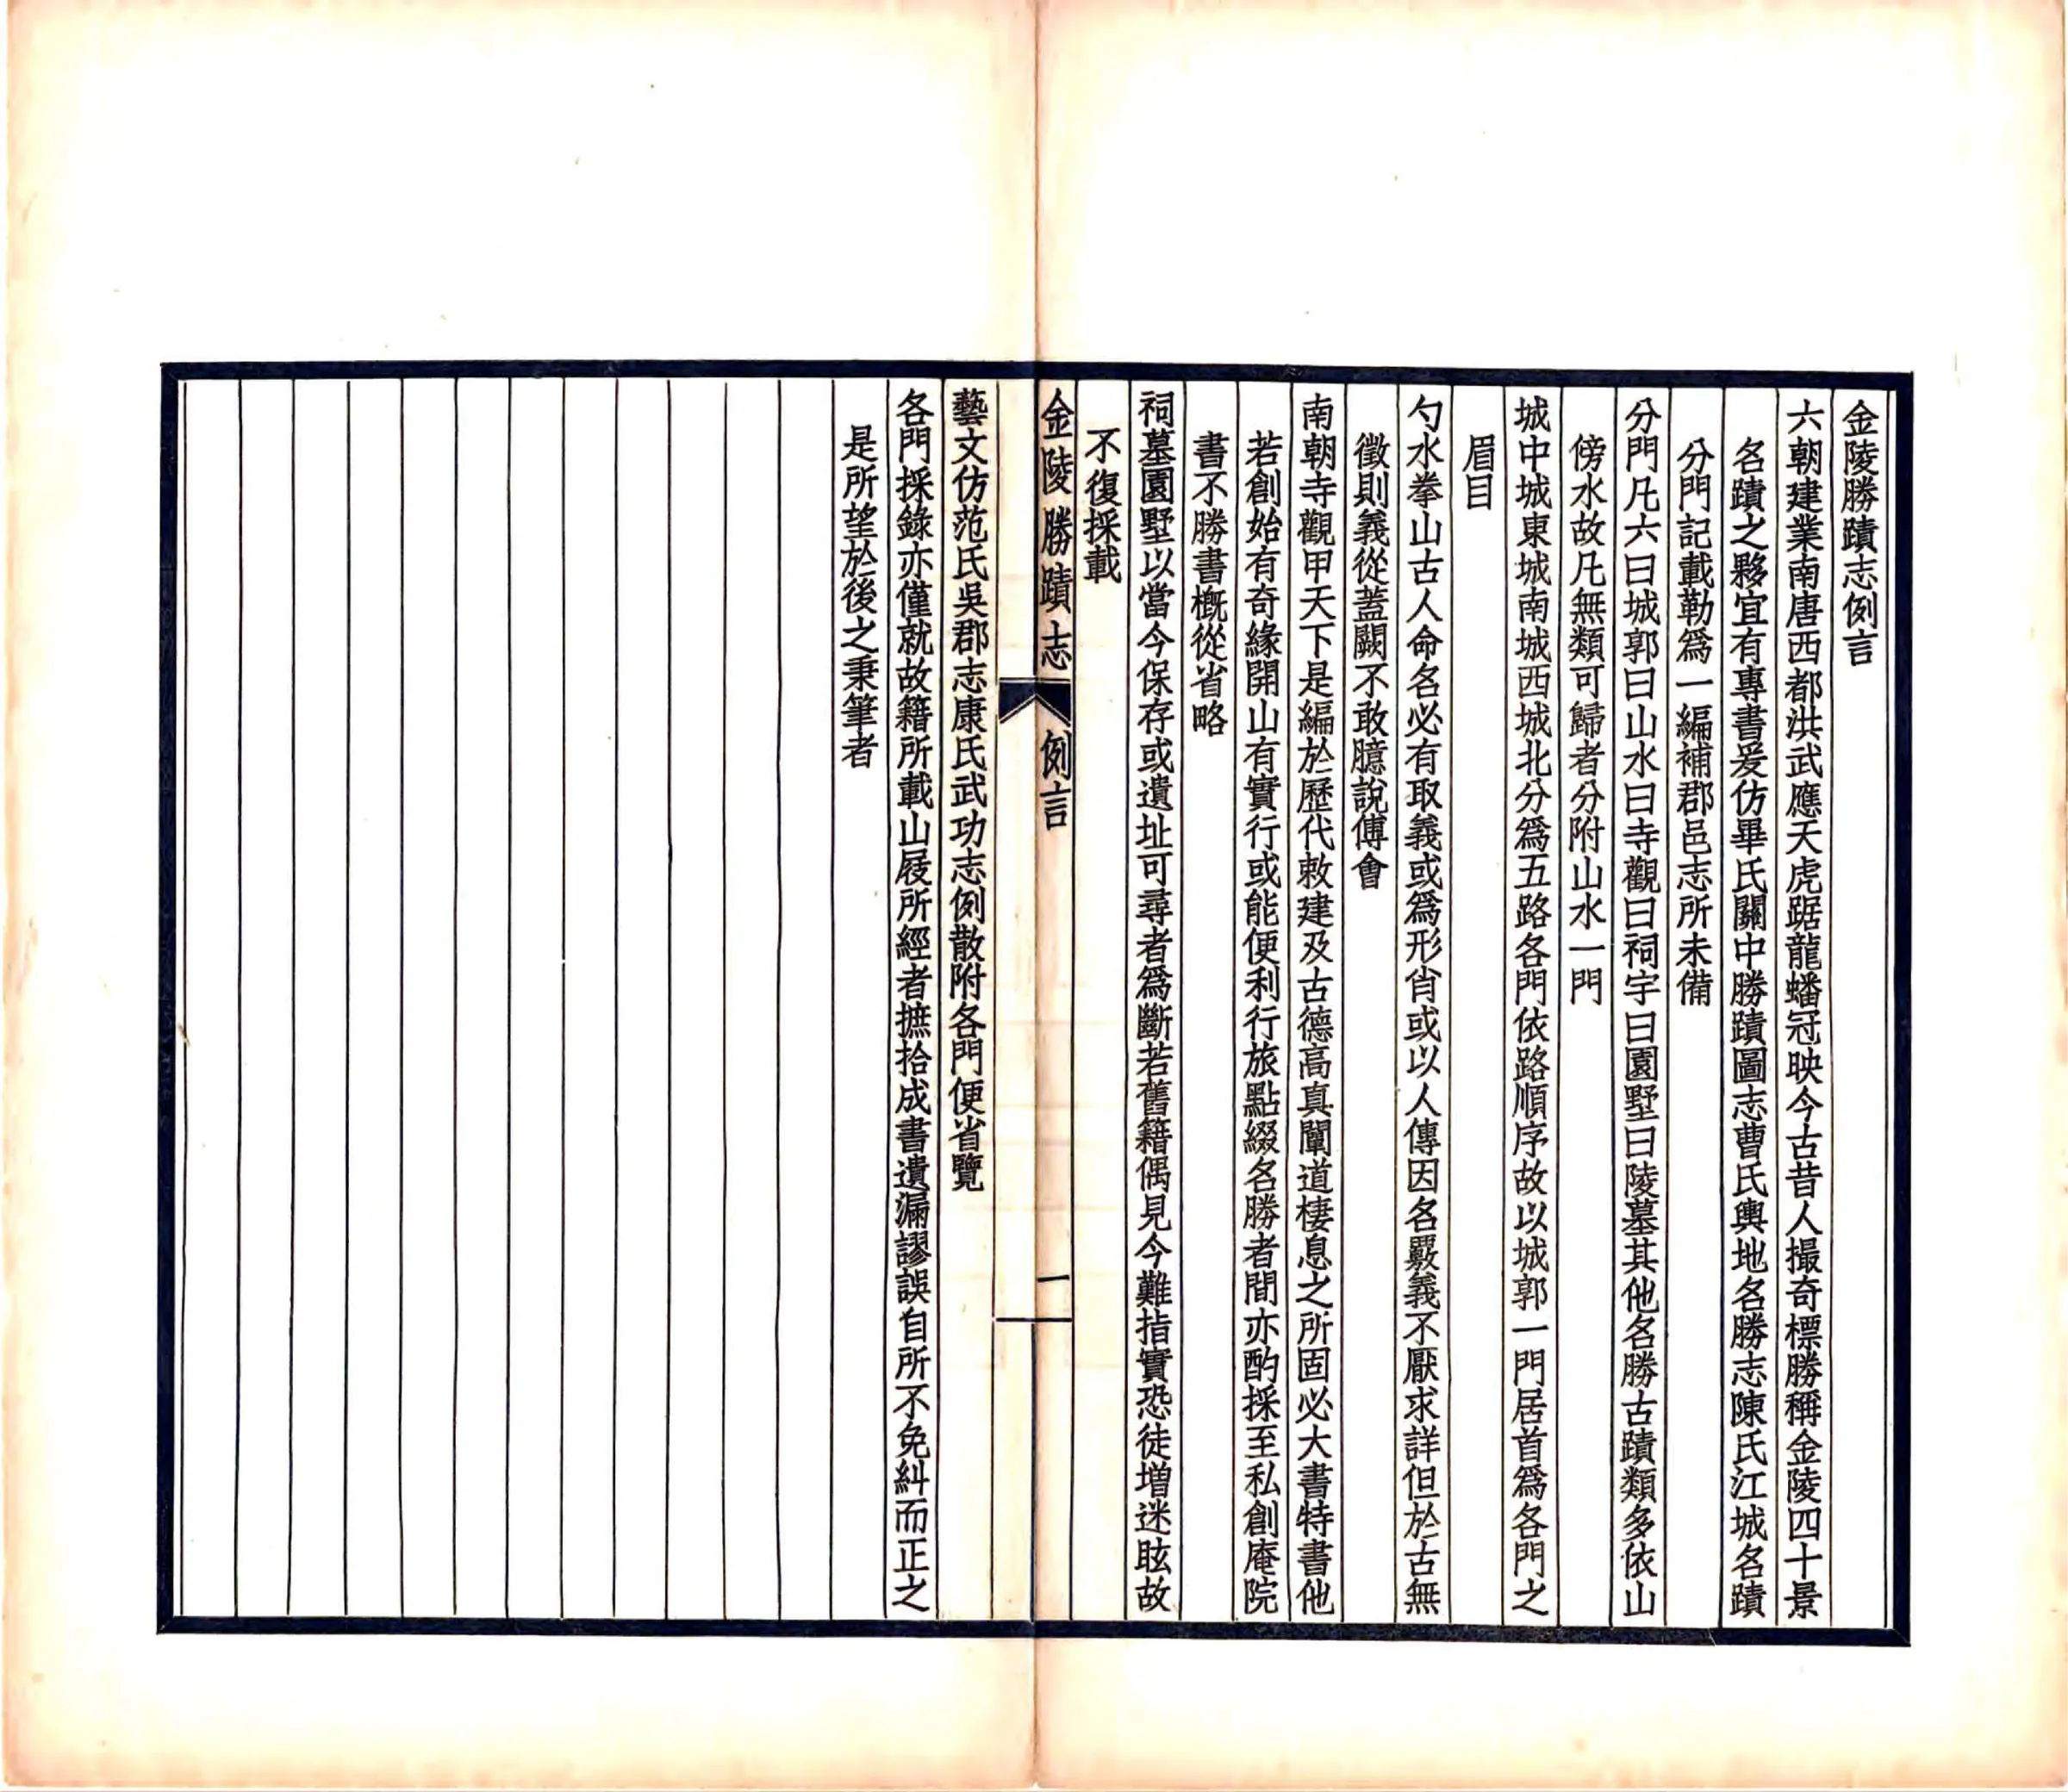 金陵勝蹟志例言
六朝建業南唐西都洪武應天虎踞龍蟠冠映今古昔人撮奇標勝稱金陵四十景
名蹟之夥宜有專書爰仿畢氏關中勝蹟圖志曹氏輿地名勝志陳氏江城名蹟
分門記載勒爲一編補郡邑志所未備
分門凡六曰城郭曰山水曰寺觀曰祠宇曰園墅曰陵墓其他名勝古蹟類多依山
傍水故凡無類可歸者分附山水一門
城中城東城南城西城北分爲五路各門依路順序故以城郭一門居首爲各門之
眉目
勺水拳山古人命名必有取義或爲形肖或以人傳因名覈義不厭求詳但於古無
徵則義從蓋闕不敢臆說傅會
南朝寺觀甲天下是編於歷代敕建及古德高真闡道棲息之所固必大書特書他
若創始有奇緣開山有實行或能便利行旅點綴名勝者間亦酌採至私創庵院
書不勝書槪從省略
祠墓園墅以當今保存或遺址可尋者爲斷若舊籍偶見今難指實恐徒增迷眩故
不復採載
金陵勝蹟志
例言
一
藝文仿范氏吳郡志康氏武功志例散附各門便省覽
各門採錄亦僅就故籍所載山屐所經者摭拾成書遺漏謬誤自所不免糾而正之
是所望於後之秉筆者